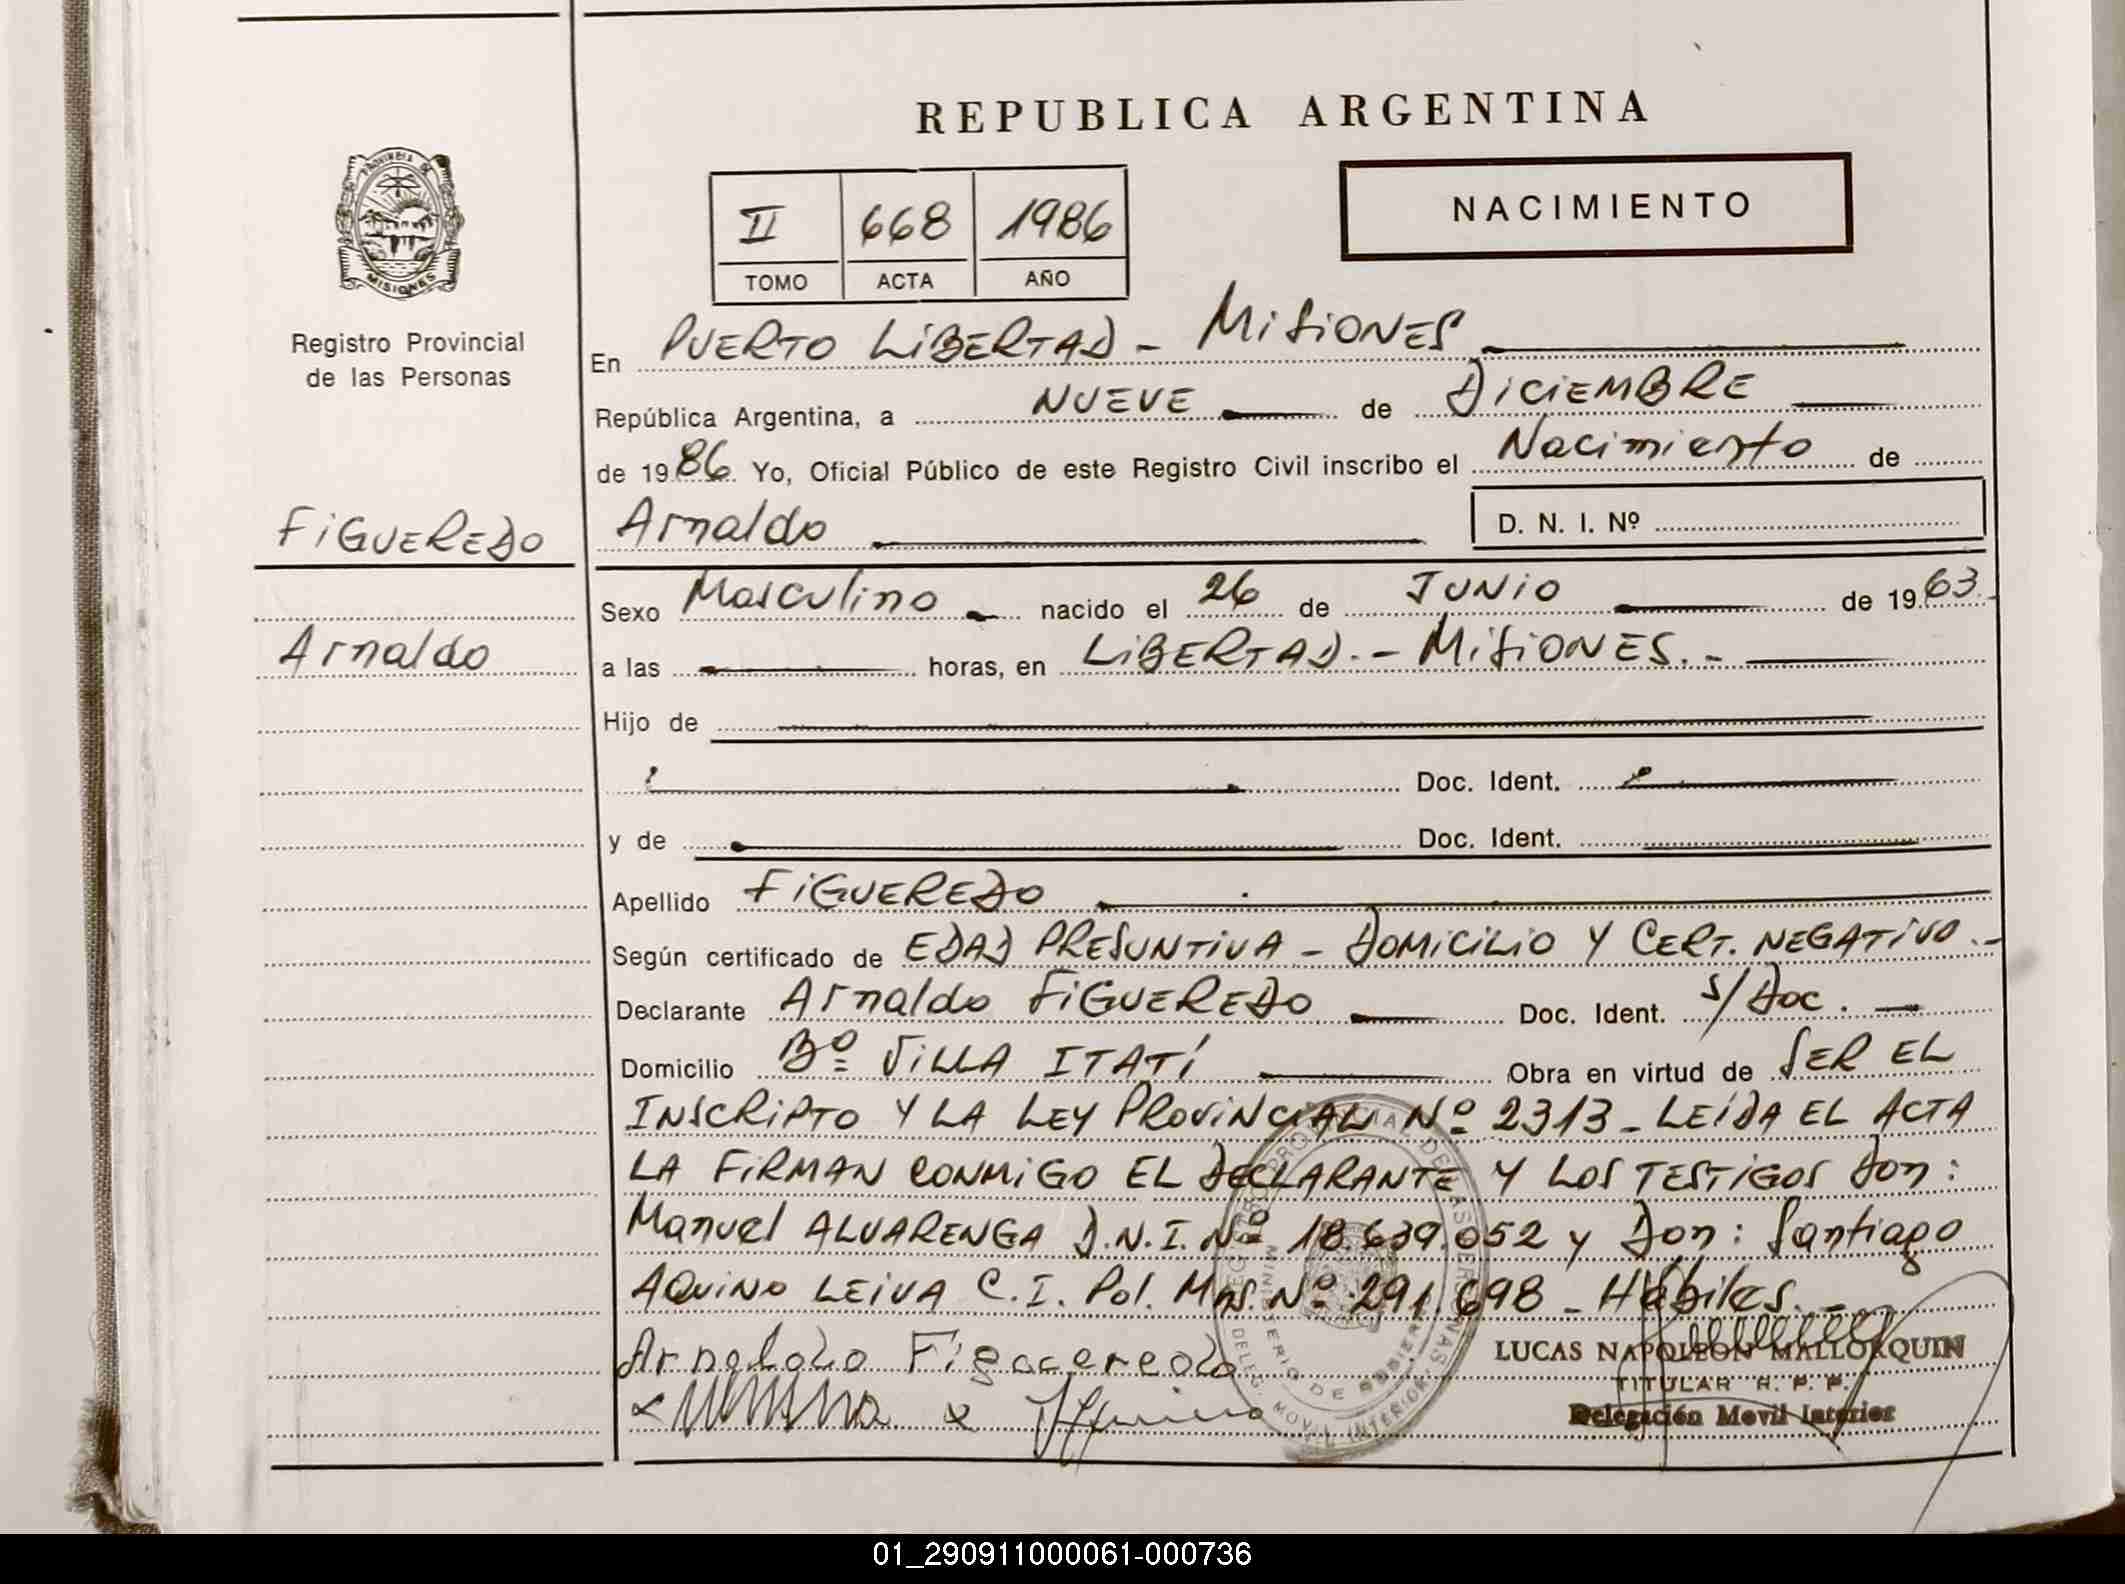 REPUBLICA ARGENTINA
PROVINCIA DE
MISIONES
Registro Provincial
de las Personas
II 668 1986
TOMO ACTA AÑO
NACIMIENTO
En PUERTO LIBERTAD - MISIONES
República Argentina, a NUEVE de DICIEMBRE
de 1986 Yo, Oficial Público de este Registro Civil inscribo el Nacimiento de
FIGUEREDO
Arnaldo
D. N. I. Nº
Sexo Masculino nacido el 26 de JUNIO de 1963.
Arnaldo
a las horas, en LIBERTAD. - MISIONES. -
Hijo de
Doc. Ident.
y de Doc. Ident.
Apellido FIGUEREDO
Según certificado de EDAD PRESUNTIVA - DOMICILIO Y CERT. NEGATIVO. -
Declarante Arnaldo FIGUEREDO Doc. Ident. s/Doc.
Domicilio Bº VILLA ITATÍ Obra en virtud de SER EL
INSCRIPTO Y LA LEY PROVINCIAL Nº 2313 - LEÍDA EL ACTA
LA FIRMAN CONMIGO EL DECLARANTE Y LOS TESTIGOS Don:
Manuel ALVARENGA D.N.I. Nº 18.639.052 y Don: Santiago
AQUINO LEIVA C.I. Pol. Mns. Nº 291.698 - Hábiles. -
Arnaldo Figueredo
LUCAS NAPOLEON MALLORQUIN
TITULAR R. P. P.
Delegación Movil Interior
DELEG. MOVIL INTERIOR
01_290911000061-000736